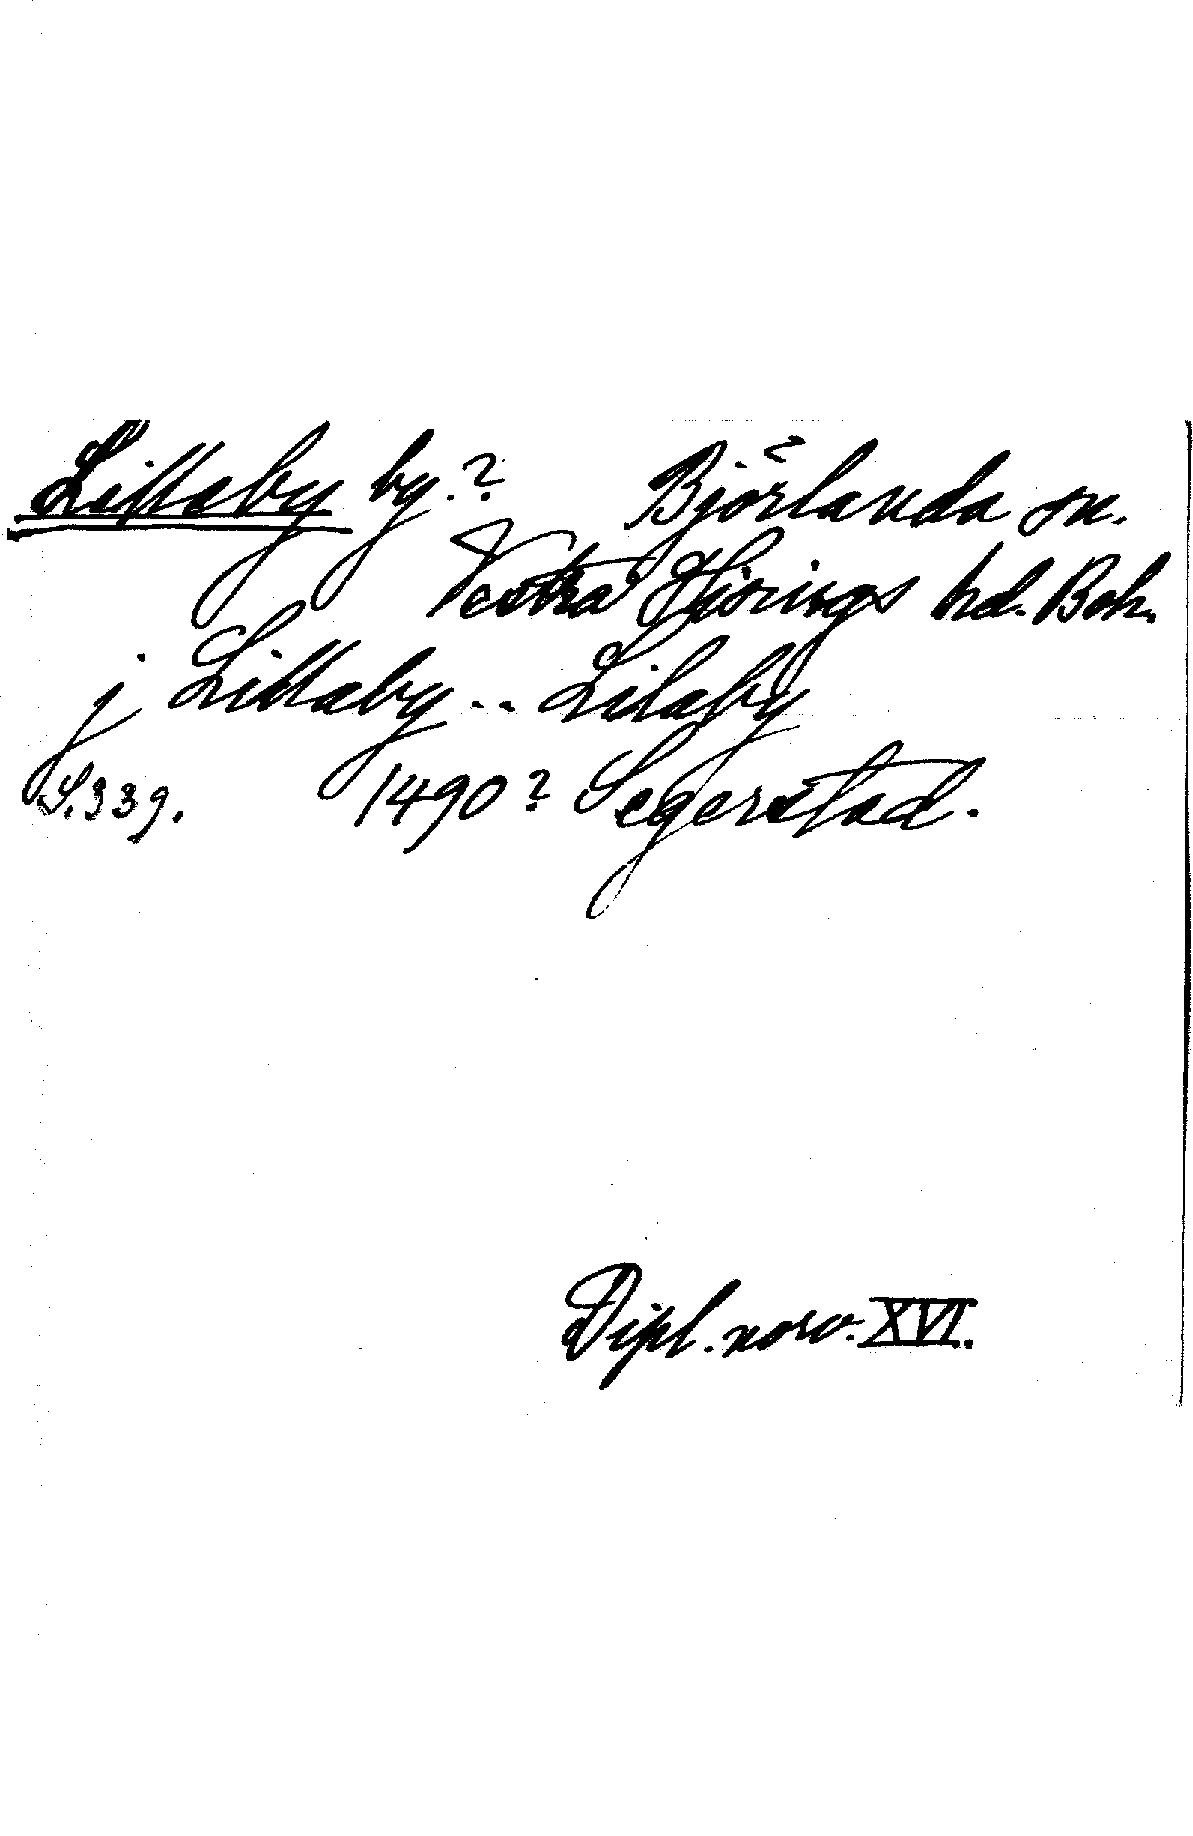 Lillaby by.? Björlanda sn.
Vestra Hisings hd. Boh.
j Lillaby .. Lilaby
S.339. 1490? Segerstad.
Dipl. norv. XVI.